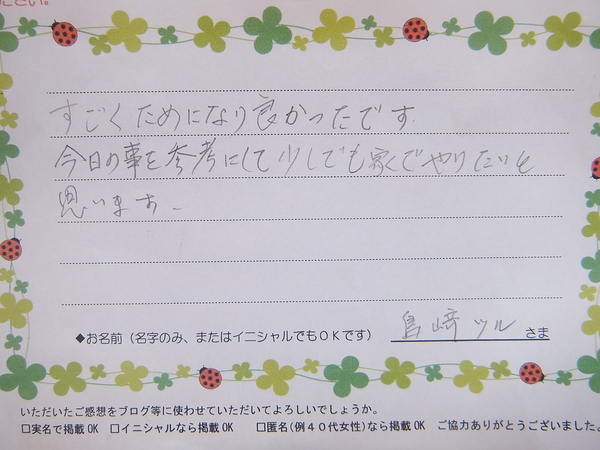 すごくためになり良かったです
今日の事を参考にして少しでも家でやりたいと
思います
◆お名前（名字のみ、またはイニシャルでもＯＫです） 島﨑ツル さま
いただいたご感想をブログ等に使わせていただいてよろしいでしょうか。
□実名で掲載OK □イニシャルなら掲載OK □匿名(例４０代女性)なら掲載OK ご協力ありがとうございました。